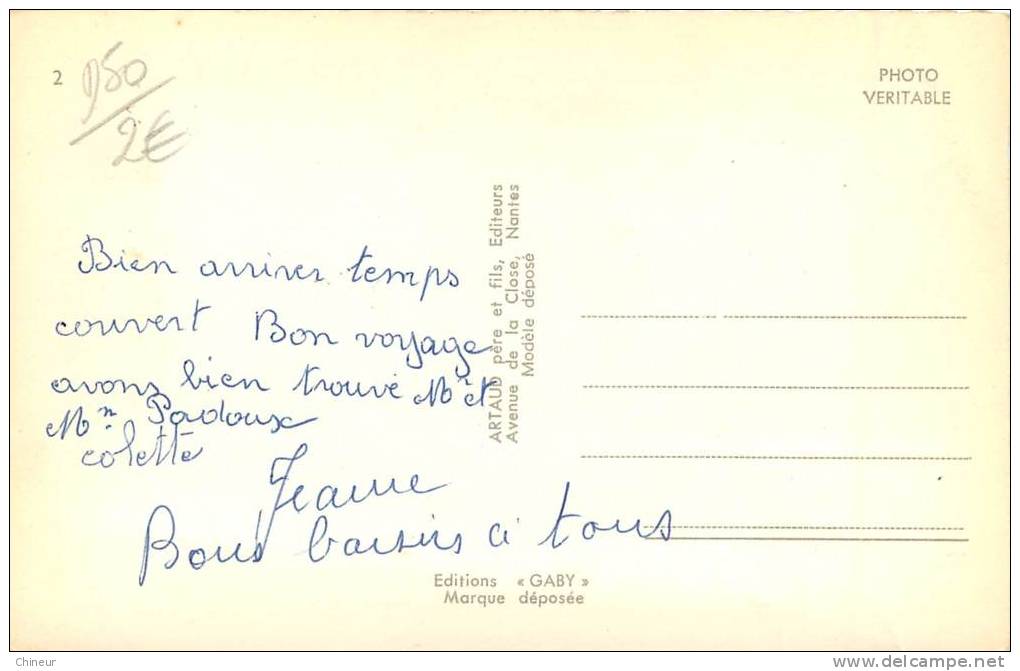 2
950
2€
PHOTO
VERITABLE
Bien arriver temps
couvert Bon voyage
avons bien trouvé Mr et
Mn Padoux
colette
Jeanne
Bons baisirs a tous
ARTAUD père et fils, Editeurs
Avenue de la Close, Nantes
Modèle déposé
Editions « GABY »
Marque déposée
Chineur
www.delcampe.net